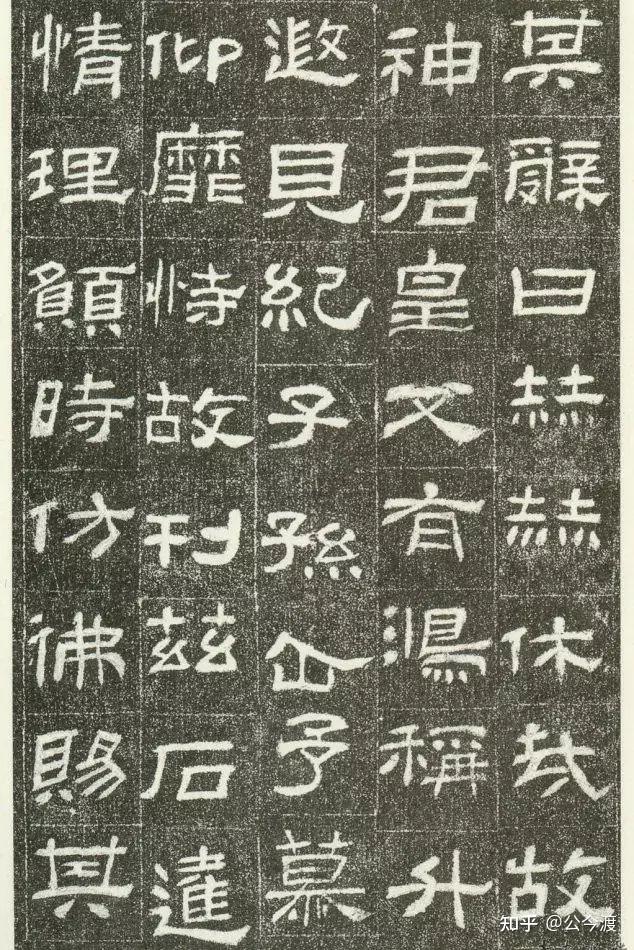 其辭曰赫赫休哉故
神君皇又有鴻稱升
遐見紀子孫企予慕
仰靡恃故刊茲石達
情理願時仿佛賜其
知乎 @公今渡